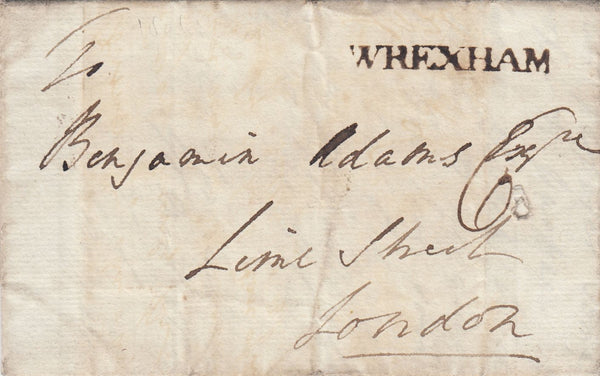 WREXHAM
To
Benjamin Adams Esqre
6
Lime Street
London